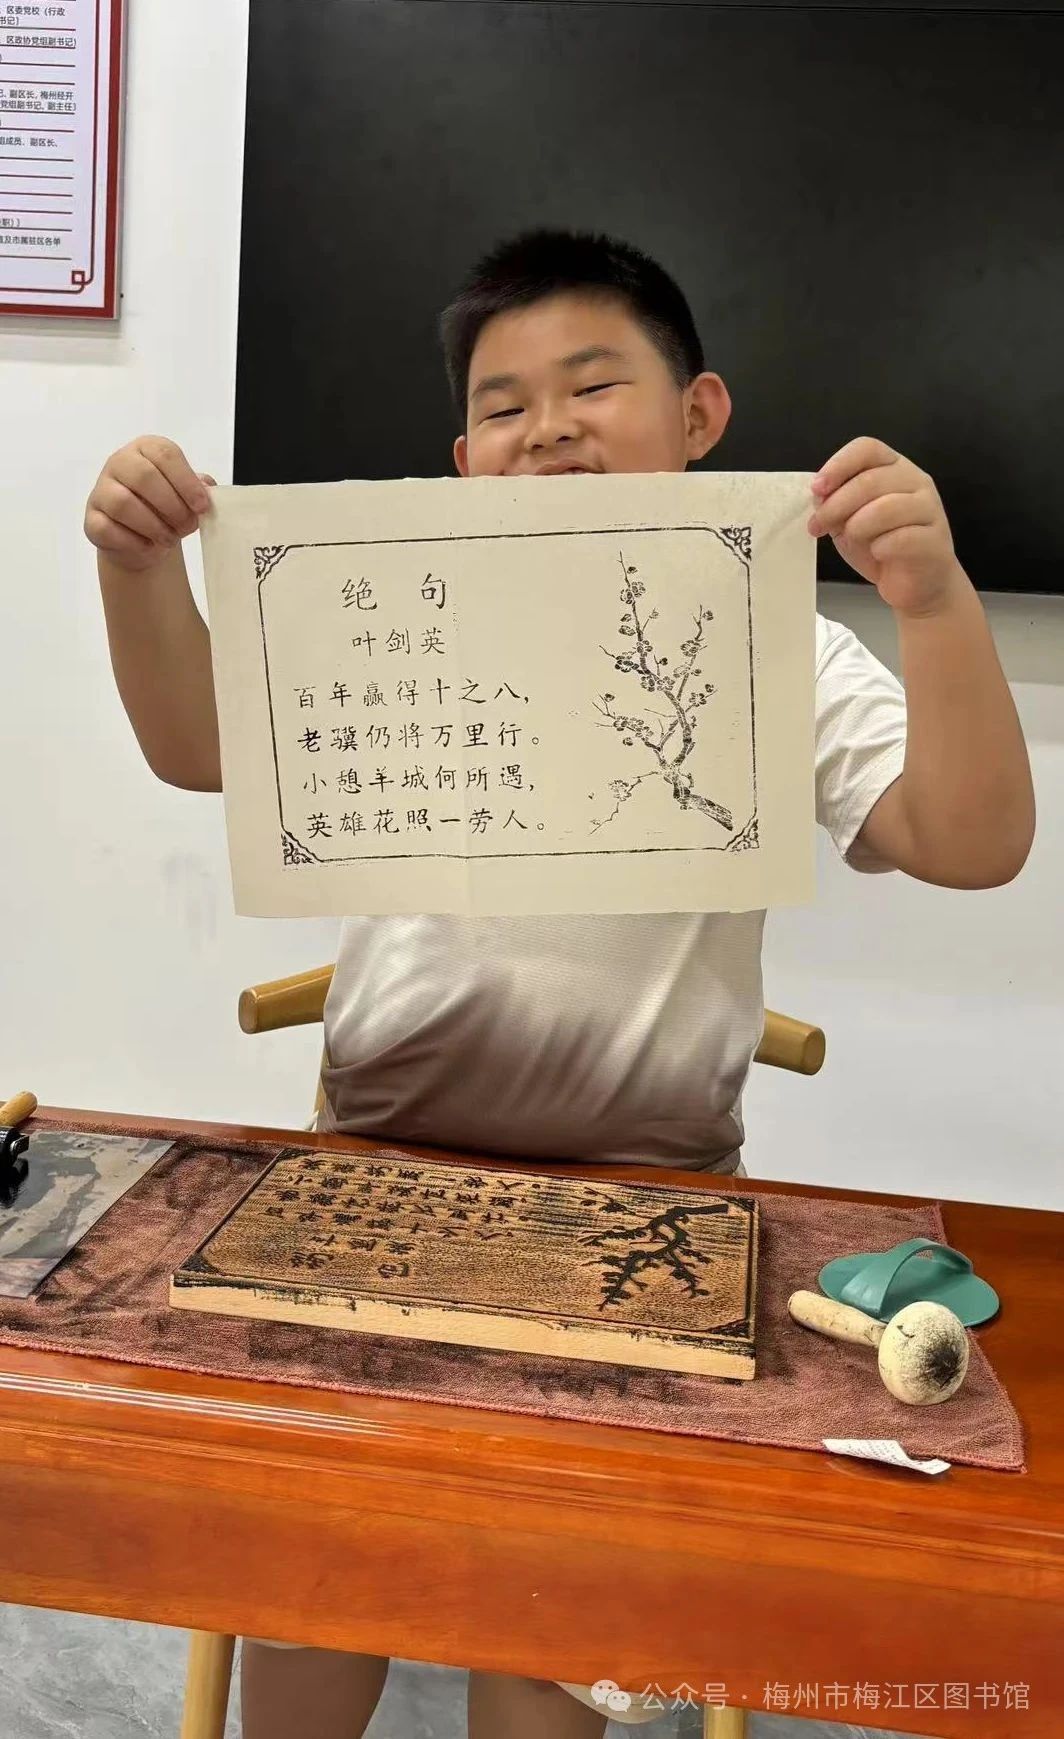 区委党校（行政
书记）
区政协党组副书记）
副区长，梅州经开
党组副书记、副主任）
组成员、副区长、
及市属驻区各单
绝句
叶剑英
百年赢得十之八，
老骥仍将万里行。
小憩羊城何所遇，
英雄花照一劳人。
公众号·梅州市梅江区图书馆